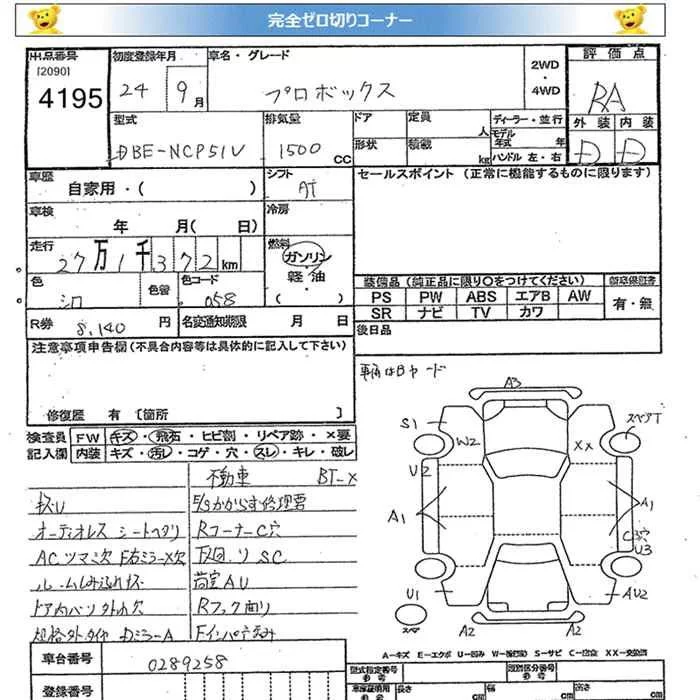 完全ゼロ切りコーナー
出品番号 初度登録年月 車名・グレード 2WD・4WD 評価点
[2090]
4195
24 9月 プロボックス RA
型式 排気量 ドア 定員 人 ディーラー・並行 外装 内装
DBE-NCP51V 1500 CC 形状 積載 kg モデル年式 年 ハンドル 左・右 D D
車歴 自家用・( ) シフト AT セールスポイント (正常に機能するものに限ります)
車検 年 月( 日) 冷房
走行 27万1千372km 燃料 ガソリン 軽油 ・( )
色 シロ 色替 色コード 058 装備品 (純正品に限り○をつけてください) 新車保証書
PS PW ABS エアB AW 有・無
SR ナビ TV カワ
R券 8,140 円 名変通知期限 月 日 後日品
注意事項申告欄(不具合内容等は具体的に記入して下さい)
修復歴 有 [箇所 ]
車輌はBヤード
検査員 FW キズ・飛石・ヒビ割・リペア跡・×要
記入欄 内装 キズ・汚レ・コゲ・穴・スレ・キレ・破レ
不動車 BT-X
オーディオレス シートヘタリ
ACツマミ欠 F右ミラーX欠
規格外タイヤ DミラーA
Rコーナー C穴
下回り SC
荷室 AU
Rフック曲り
A3
S1 W2 XX スペアT
U2 A1 A1
C3穴 U3
U1 AU2
スペア A2 A2
A-キズ E-エクボ U-凹み W-補修跡 S-サビ C-腐食 XX-交換済
車台番号 0289258 型式指定番号 参考 類別区分番号 参考
登録番号 車庫証明用 参考 長さ cm 幅 cm 高さ cm